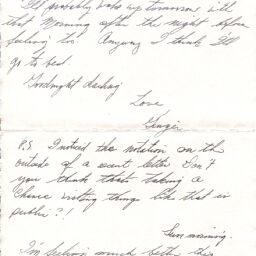 I'll probably wake up tomorrow with
that Morning after the night before
feeling too. Anyway I think I'll
go to bed.
Goodnight darling
Love
P.S. I noticed the notation on the
outside of a recent letter Don't
you think that's taking a
chance writing things like that in
public?!
Sun morning.
I'm feeling much better this